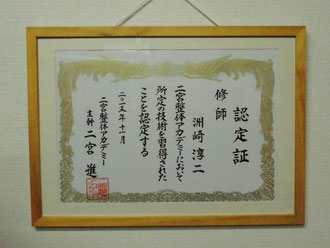 認定証
修師
洲崎淳二
二宮整体アカデミーにおいて
所定の技術を習得された
ことを認定する
二〇一五年十一月
二宮整体アカデミー
主幹 二宮 進